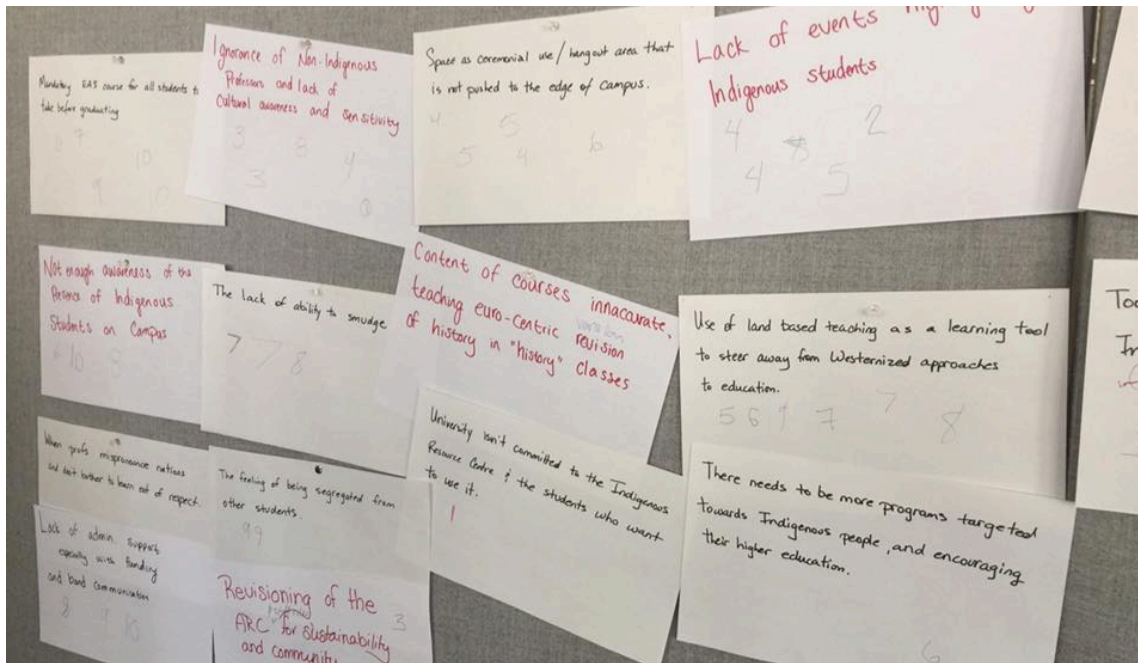 Mandatory EAS course for all students to
take before graduating
7
10
9
10
Ignorance of Non-Indigenous
Professors and lack of
Cultural awareness and sensitivity
3 8 4
3
Space as ceremonial use / hangout area that
is not pushed to the edge of campus.
4 5
5 4 6
Lack of events
Indigenous students
4 2
4 5
Not enough awareness of the
Presence of Indigenous
Students on Campus
10 8
The lack of ability to smudge
7 7 8
Content of courses innacurate,
teaching euro-centric version revision
of history in "history" classes
Use of land based teaching as a learning tool
to steer away from Westernized approaches
to education.
5 6 9 7 7 8
When profs mispronounce nations
and don't bother to learn out of respect.
The feeling of being segregated from
other students.
9 9
University isn't committed to the Indigenous
Resource Centre & the students who want
to use it.
1
There needs to be more programs targeted
towards Indigenous people, and encouraging
their higher education.
6
Lack of admin. support
especially with funding
and band communication
8 9 10
Revisioning of the
ARC for sustainability
and community
3